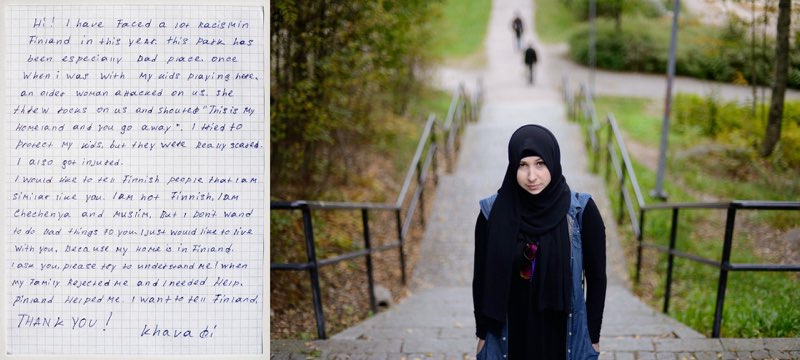 Hi! I have faced a lot racism in
Finland in this year. this Park has
been especially bad place. once
when i was with my kids playing here,
an older woman attacked on us. she
threw rocks on us and shouted "This is my
Homeland and you go away". I tried to
protect my kids, but they were really scared.
I also got injured.
I would like to tell Finnish people that I am
similar like you. I am not Finnish, I am
Chechenya and Muslim. But I don't wand
to do bad things to you. I just would like to live
with you. Because my Home is in Finland.
I ask you, please try to understand me! when
my family rejected me and i needed Help.
Finland Helped me. I want to tell Finland,
THANK YOU!
Khava